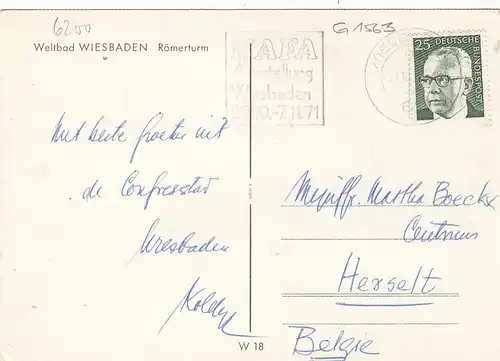 6200
G 1563
Weltbad WIESBADEN Römerturm
HAFA
Ausstellung
Wiesbaden
10.-7.11.71
25 DEUTSCHE BUNDESPOST
Met beste groeten uit
de Congresstad
Wiesbaden
Mejuffr. Martha Boeckx
Centrum
Herselt
Belgie
W 18